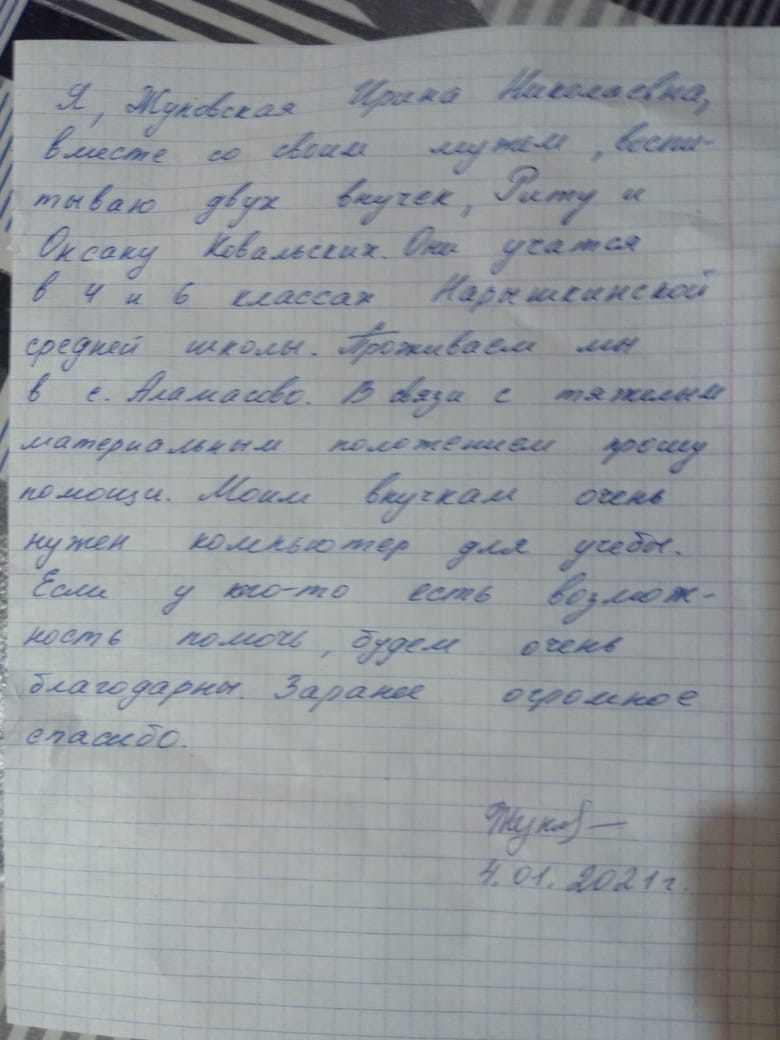 Я, Жуковская Ирина Николаевна,
вместе со своим мужем, воспи-
тываю двух внучек, Риту и
Оксану Ковальских. Они учатся
в 4 и 6 классах Нарышкинской
средней школы. Проживаем мы
в с. Аламасово. В связи с тяжелым
материальным положением прошу
помощи. Моим внучкам очень
нужен компьютер для учебы.
Если у кого-то есть возмож-
ность помочь, будем очень
благодарны. Заранее огромное
спасибо.
4.01.2021г.